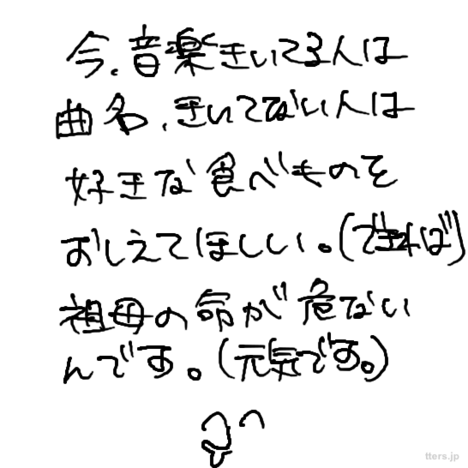 今、音楽きいてる人は
曲名、きいてない人は
好きな食べものを
おしえてほしい。(できれば)
祖母の命が危ない
んです。(元気です。)
tters.jp